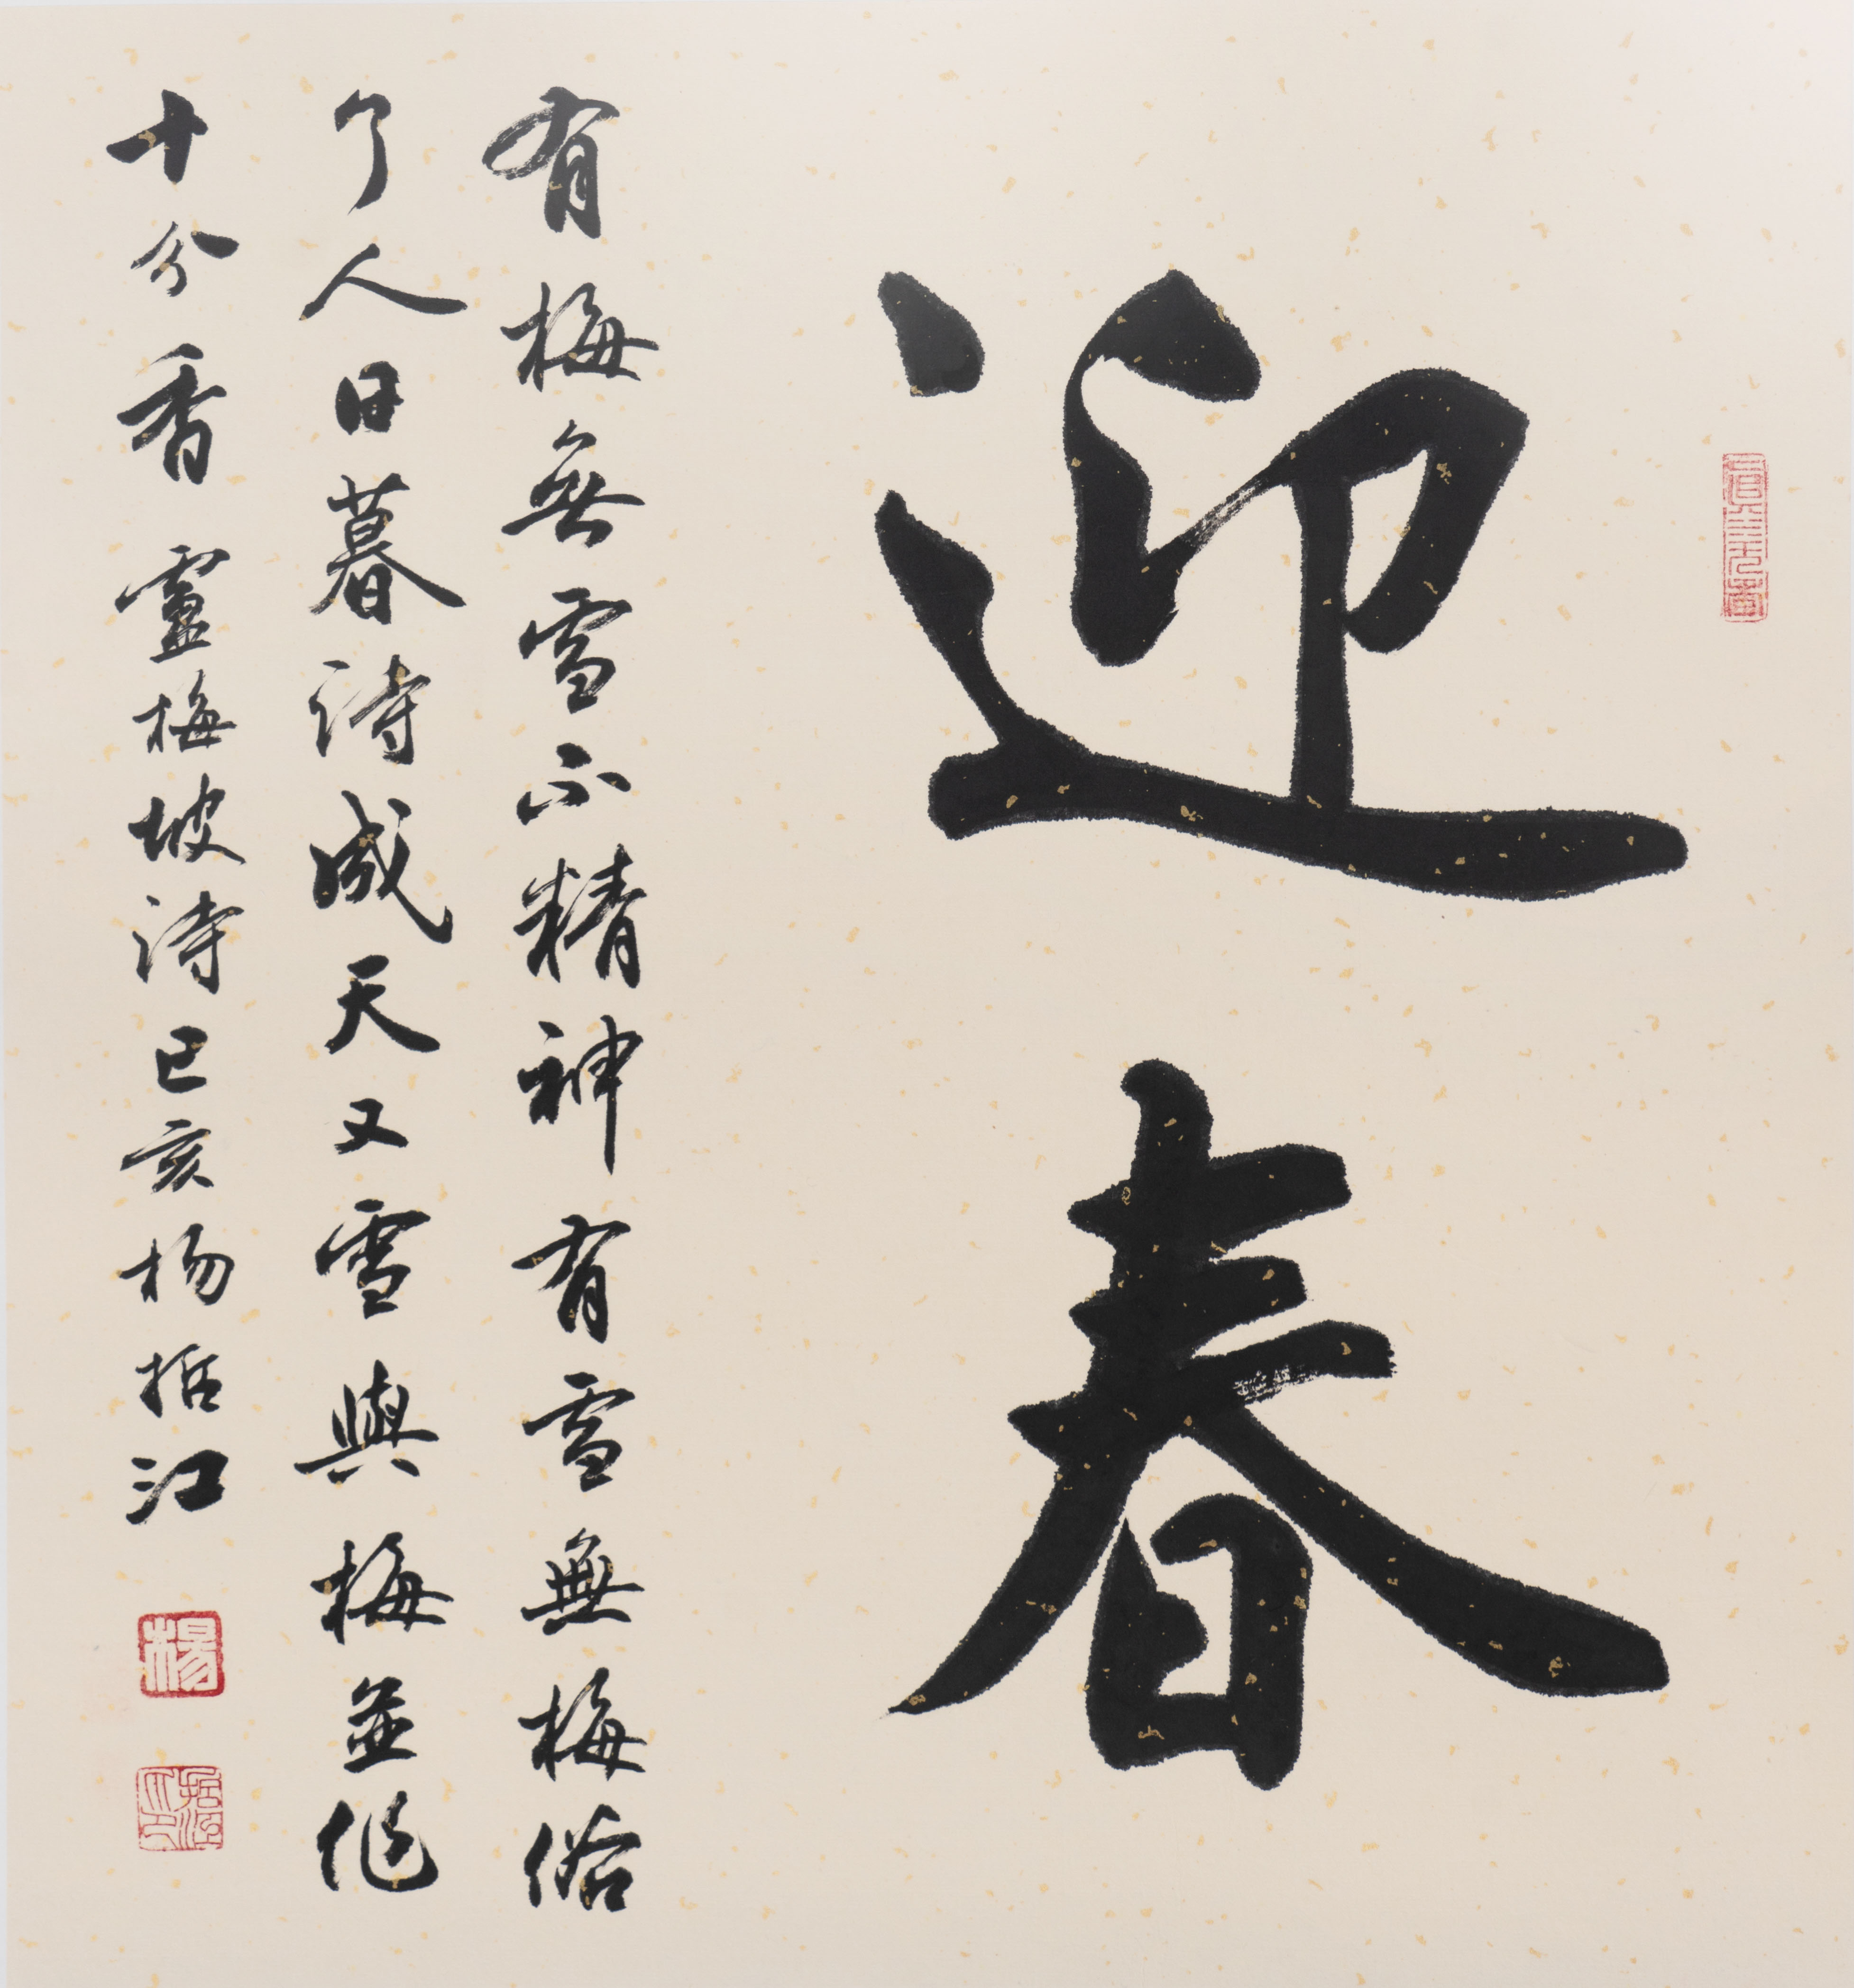 迎春
有梅無雪不精神有雪無梅俗
了人日暮詩成天又雪與梅並作
十分香盧梅坡詩己亥杨括江
楊